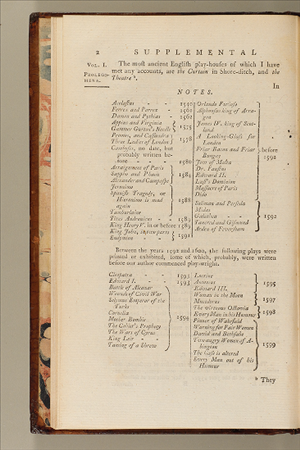 2 SUPPLEMENTAL
VOL. I.
PROLEGO-
MENA.
The most ancient English play-houses of which I have
met any accounts, are the Curtain in Shore-ditch, and the
Theatre
In
NOTES.
Acolastus - - - 1540
Ferrex and Porrex - 1561
Damon and Pythias - 1562
Appius and Virginia
Gammer Gurton's Needle 1575
Promos, and Cassandra
Three Ladies of London 1578
Cambyses, no date, but
probably written be-
fore - - - 1580
Arraignment of Paris
Sappho and Phaon 1584
Alexander and Campaspe
Jeronimo
Spanish Tragedy, or
Hieronimo is mad
again 1588
Tamburlaine
Titus Andronicus - 1589
King Henry V. in or before 1589
King John, in two parts
Endymion - - 1591
Orlando Furioso
Alphonsus king of Arra-
gon
James IV. king of Scot-
land
A Looking-Glass for
London
Friar Bacon and Friar
Bungay
before
1592
Jew of Malta
Dr. Faustus
Edward II.
Lust's Dominion
Massacre of Paris
Dido
Soliman and Perseda
Midas
Galathea 1592
Tancred and Gismund
Arden of Feversham
Between the years 1592 and 1600, the following plays were
printed or exhibited, some of which, probably, were written
before our author commenced play-wright.
Cleopatra - - 1593
Edward I. - - 1593
Battle of Alcazar
Wounds of Civil War
Selymus Emperor of the
Turks
Cornelia
Mother Bombie 1594
The Cobler's Prophecy
The Wars of Cyrus
King Leir
Taming of a Shrew
Locrine
Antonius 1595
Edward III.
Woman in the Moon
Mucedorus 1597
The virtuous Octavia
Every Man in his Humour 1598
Pinner of Wakefield
Warning for Fair Women
David and Bethsabe
Two angry Women of A-
bington 1599
The Case is altered
Every Man out of his
Humour
They